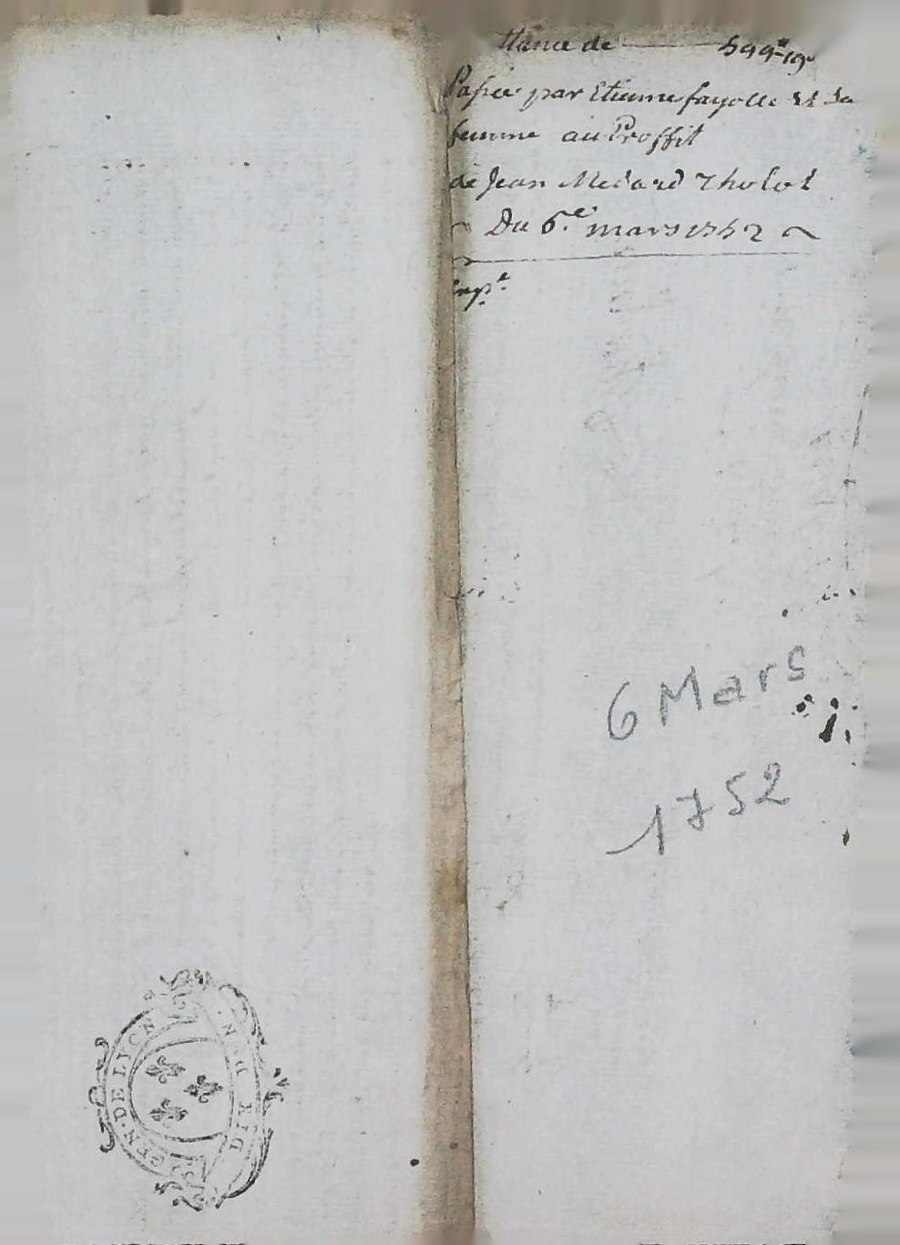 ttance de ——— 599# 19s
Passée par Etienne fayolle Et Sa
femme au Proffit
de Jean Medard Tholot
Du 6.e mars 1752
Exp.e
6 Mars
1752
GEN. DE LYON